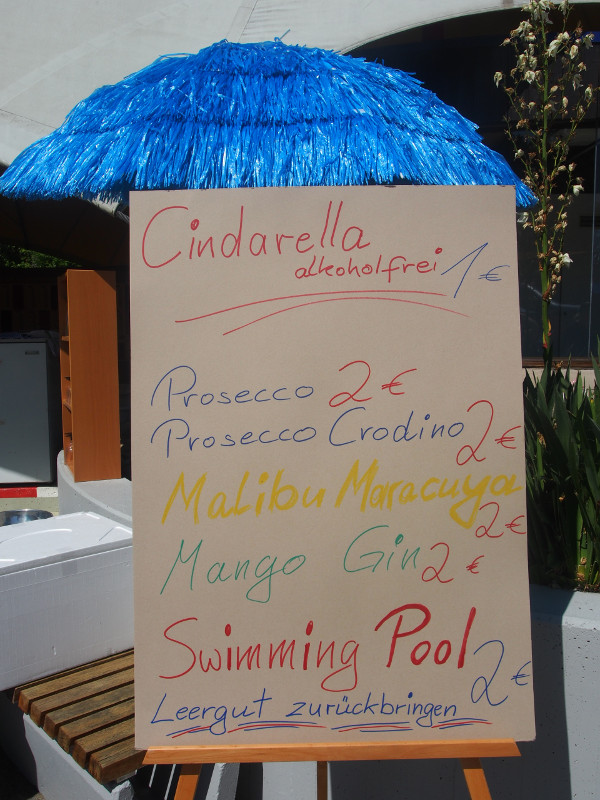 Cindarella
alkoholfrei 1 €
Prosecco 2 €
Prosecco Crodino 2 €
Malibu Maracuya
2 €
Mango Gin 2 €
Swimming Pool
2 €
Leergut zurückbringen